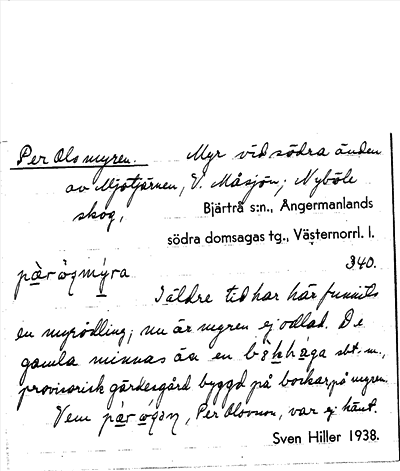 Per Ols myren. Myr vid södra änden
av Mjötjärnen, V. Måsjön; Nyböle
skog,
Bjärtrå s:n., Ångermanlands
södra domsagas tg., Västernorrl. l.
340.
I äldre tid har här funnits
en myrodling; nu är myren ej odlad. De
gamla minnas än en
provisorisk gärdesgård byggd på bockar på myren.
Vem Per Olsson, var ej känt.
Sven Hiller 1938.